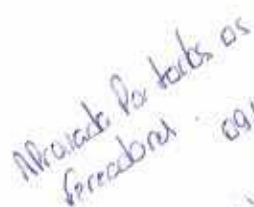 Aprovado Por todos os
Vereadores. 09